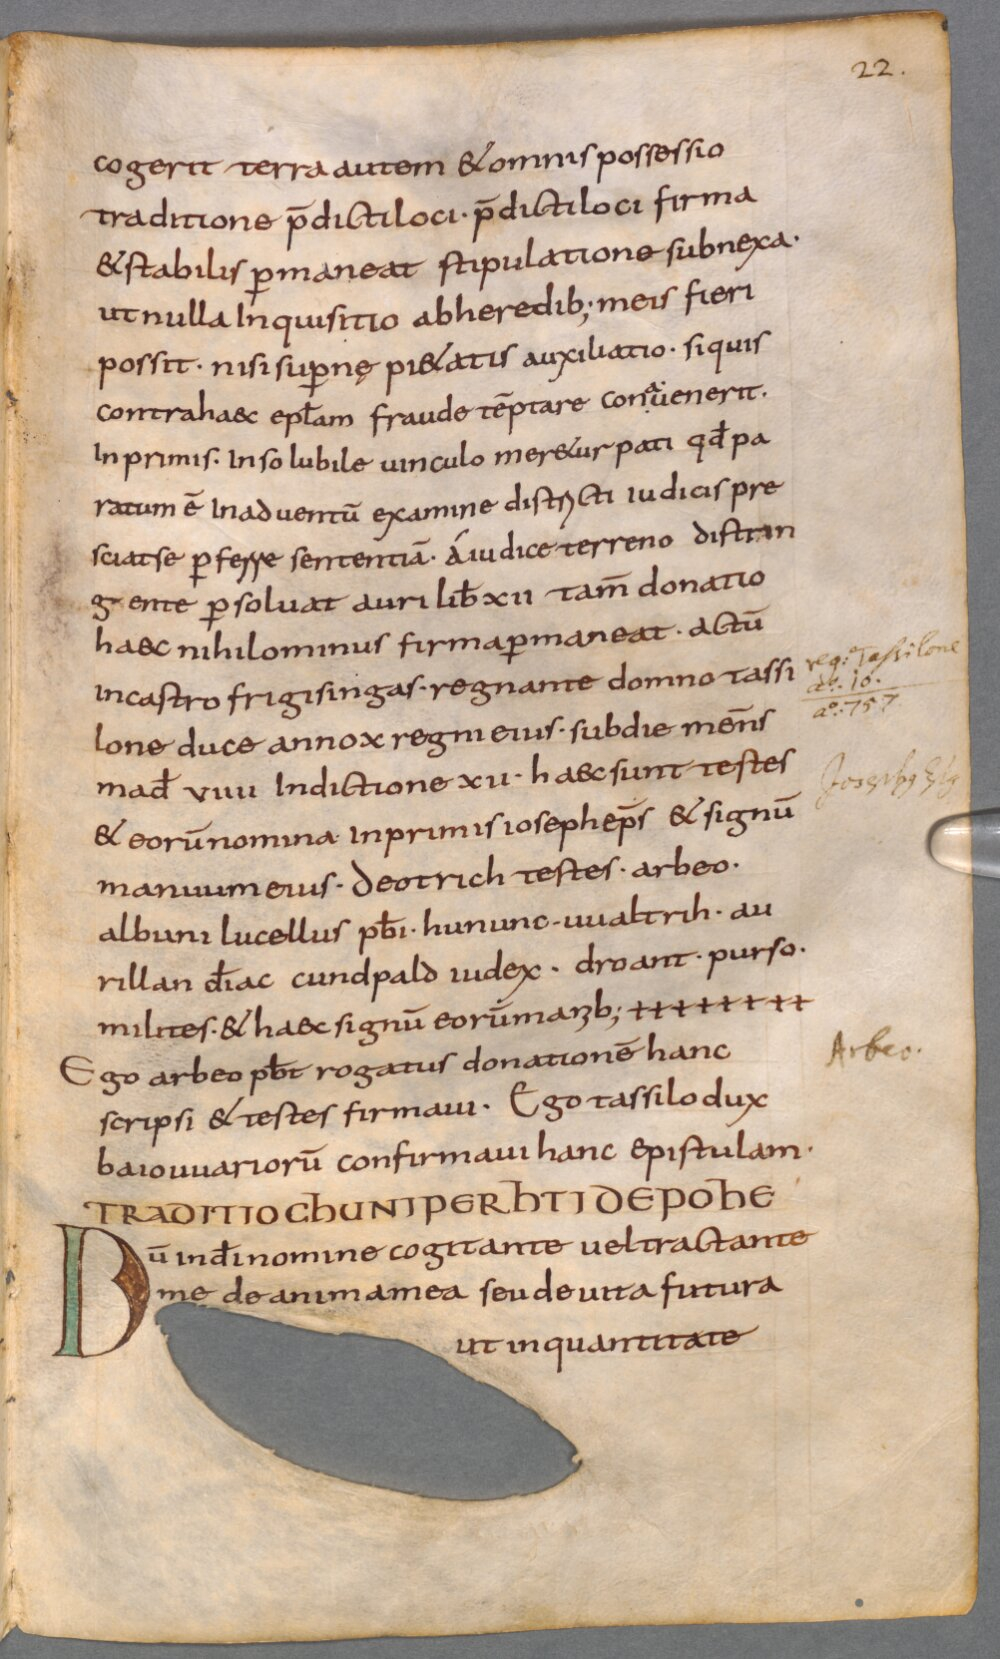 22.
cogerit terra autem & omnis possessio
traditione p̄dicti loci · p̄dicti loci firma
& stabilis ꝑmaneat stipulatione subnexa ·
ut nulla Inquisitio abheredib; meis fieri
possit · nisi suꝑnę pi&atis auxiliatio · siquis
contra haec epłam fraude tēptare conauenerit ·
In primis · Insolubile uinculo mer&ur pati qđ pa
ratum ē Inaduentū examine districti iudicis pre
sciat se ꝑfesse sententiā · Á iudice terreno distrin
gente ꝑsoluat auri lib̄ xii tam̄ donatio
haec nihilominus firma ꝑmaneat · actū
in castro frigisingas · regnante domno tassi
reg: Tassilone
ao. 10.
ao: 757
lone duce anno x regni eius · sub die mēns
mađ viiii Indictione xii · haec sunt testes
Josephꝰ
& eorū nomina in primis ioseph ep̄s & signū
manuum eius · deotrich testes · arbeo ·
albuni lucellus pb̄i · hununc · uualtrih · au
rillan điac cundpald iudex · droant · purso ·
milites · & haec signū eorū manib; ++++++++
Arbeo.
Ego arbeo pb̄t rogatus donationē hanc
scripsi & testes firmaui · Ego tassilo dux
baiouuariorū confirmaui hanc epistulam ·
TRADITIO CHUNIPERHTI DE POHE
Dū in đi nomine cogitante uel tractante
me de anima mea seu de uita futura
ut in quantitate